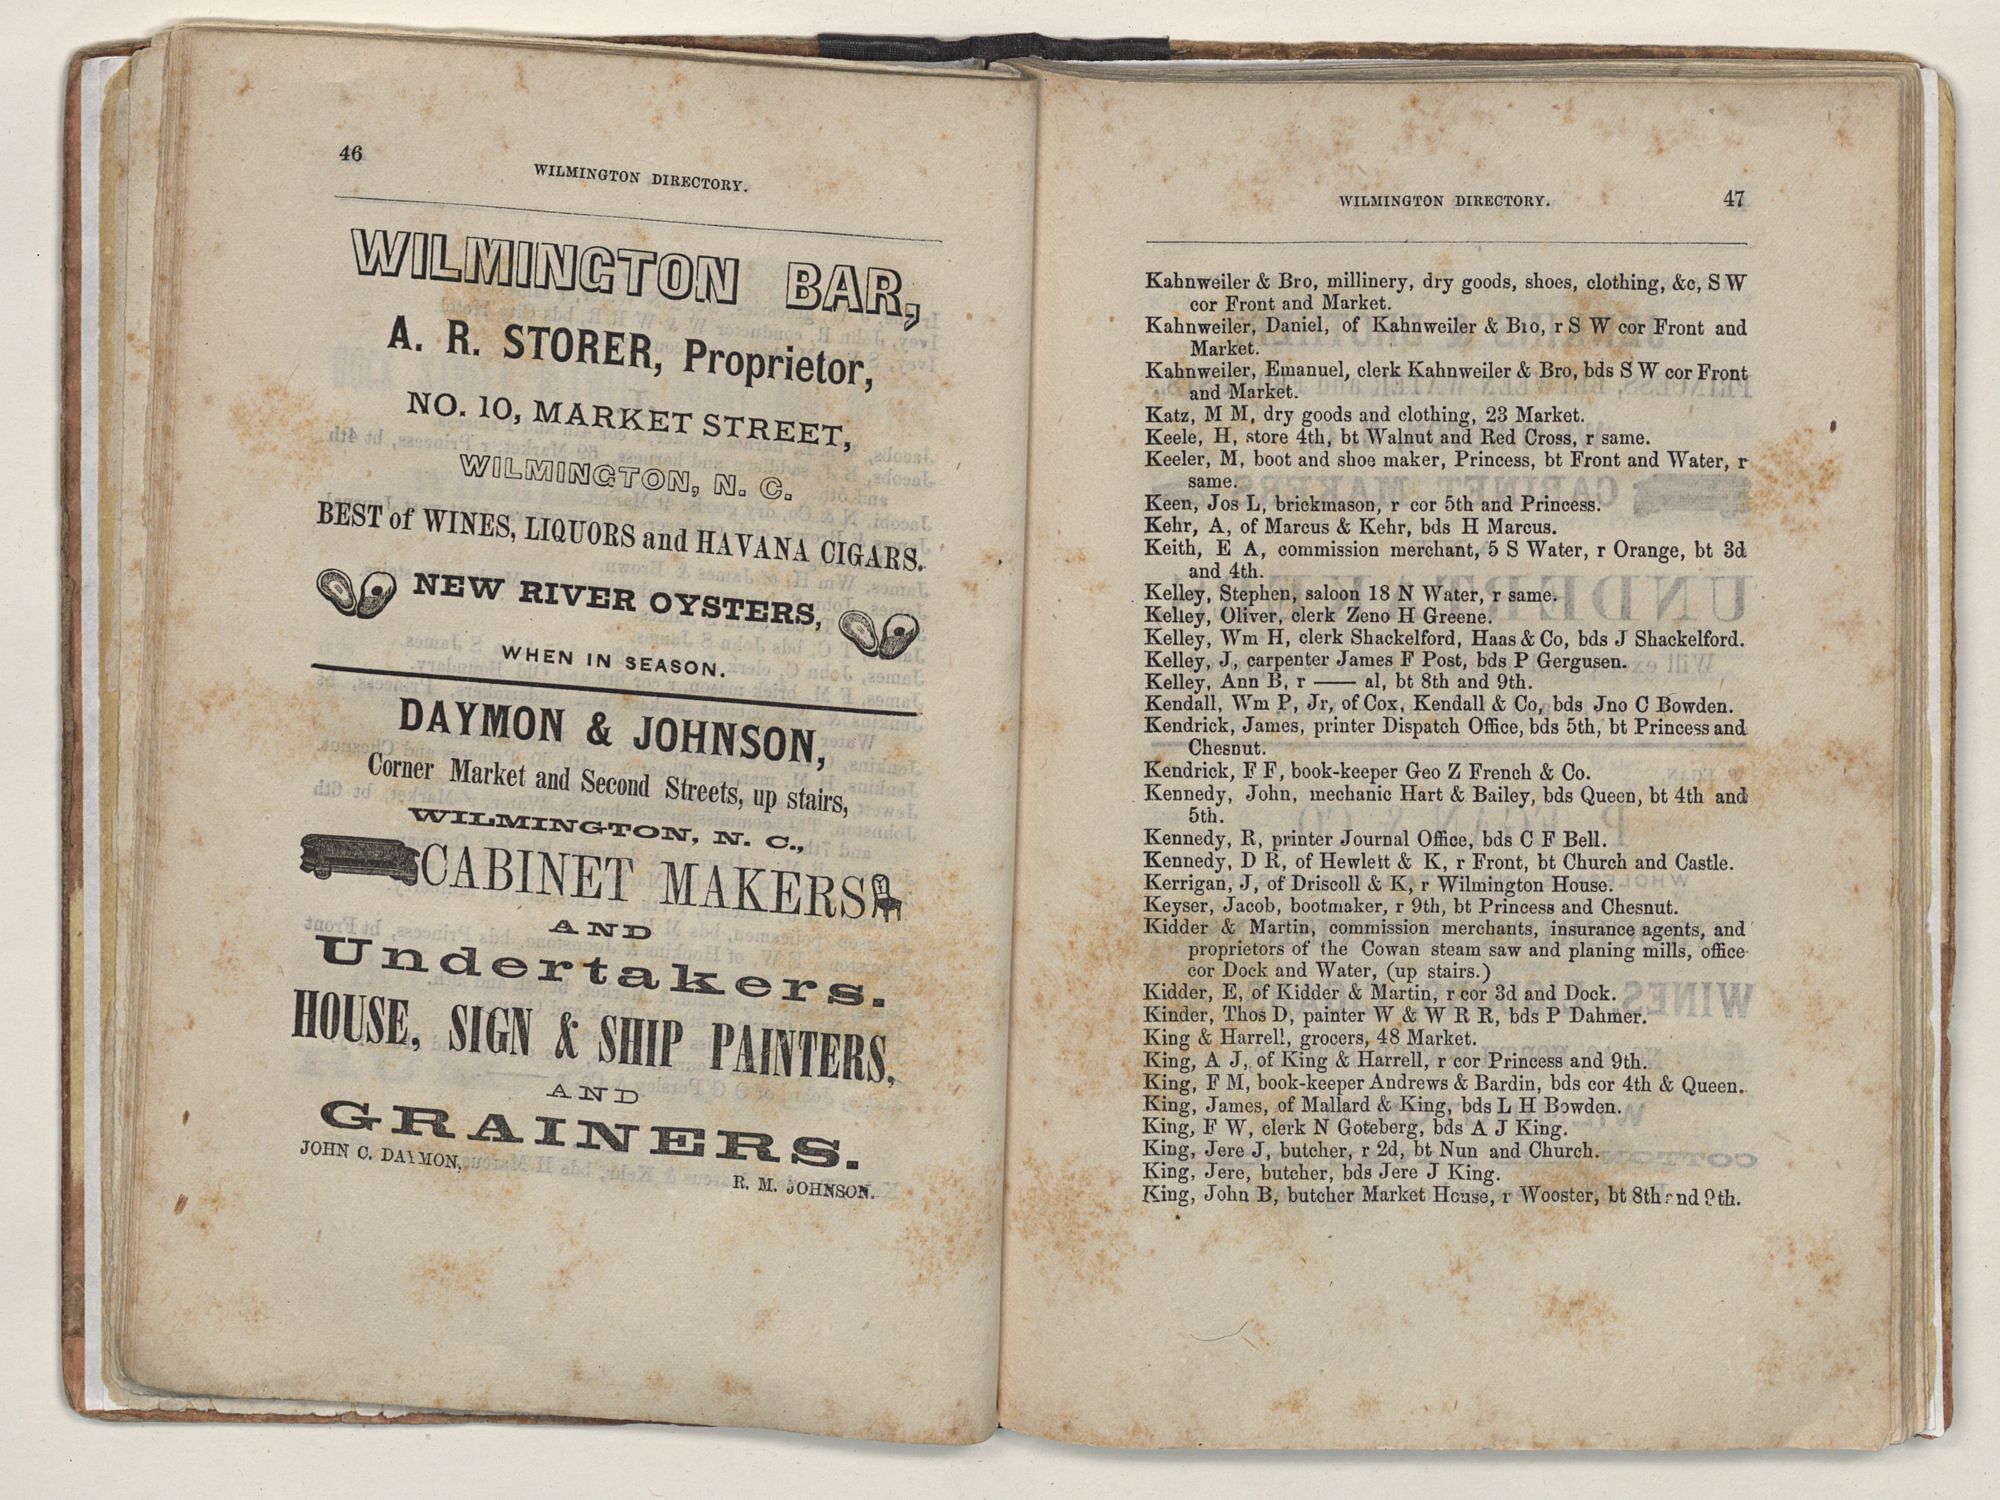 46
WILMINGTON DIRECTORY.
WILMINGTON BAR,
A. R. STORER, Proprietor,
NO. 10, MARKET STREET,
WILMINGTON, N. C.
BEST of WINES, LIQUORS and HAVANA CIGARS.
NEW RIVER OYSTERS,
WHEN IN SEASON.
DAYMON & JOHNSON,
Corner Market and Second Streets, up stairs,
WILMINGTON, N. C.,
CABINET MAKERS
AND
Undertakers.
HOUSE, SIGN & SHIP PAINTERS,
AND
GRAINERS.
JOHN C. DAYMON,
R. M. JOHNSON.
WILMINGTON DIRECTORY.
47
Kahnweiler & Bro, millinery, dry goods, shoes, clothing, &c, S W
cor Front and Market.
Kahnweiler, Daniel, of Kahnweiler & Bro, r S W cor Front and
Market.
Kahnweiler, Emanuel, clerk Kahnweiler & Bro, bds S W cor Front
and Market.
Katz, M M, dry goods and clothing, 23 Market.
Keele, H, store 4th, bt Walnut and Red Cross, r same.
Keeler, M, boot and shoe maker, Princess, bt Front and Water, r
same.
Keen, Jos L, brickmason, r cor 5th and Princess.
Kehr, A, of Marcus & Kehr, bds H Marcus.
Keith, E A, commission merchant, 5 S Water, r Orange, bt 3d
and 4th.
Kelley, Stephen, saloon 18 N Water, r same.
Kelley, Oliver, clerk Zeno H Greene.
Kelley, Wm H, clerk Shackelford, Haas & Co, bds J Shackelford.
Kelley, J, carpenter James F Post, bds P Gergusen.
Kelley, Ann B, r —— al, bt 8th and 9th.
Kendall, Wm P, Jr, of Cox, Kendall & Co, bds Jno C Bowden.
Kendrick, James, printer Dispatch Office, bds 5th, bt Princess and
Chesnut.
Kendrick, F F, book-keeper Geo Z French & Co.
Kennedy, John, mechanic Hart & Bailey, bds Queen, bt 4th and
5th.
Kennedy, R, printer Journal Office, bds C F Bell.
Kennedy, D R, of Hewlett & K, r Front, bt Church and Castle.
Kerrigan, J, of Driscoll & K, r Wilmington House.
Keyser, Jacob, bootmaker, r 9th, bt Princess and Chesnut.
Kidder & Martin, commission merchants, insurance agents, and
proprietors of the Cowan steam saw and planing mills, office
cor Dock and Water, (up stairs.)
Kidder, E, of Kidder & Martin, r cor 3d and Dock.
Kinder, Thos D, painter W & W R R, bds P Dahmer.
King & Harrell, grocers, 48 Market.
King, A J, of King & Harrell, r cor Princess and 9th.
King, F M, book-keeper Andrews & Bardin, bds cor 4th & Queen.
King, James, of Mallard & King, bds L H Bowden.
King, F W, clerk N Goteberg, bds A J King.
King, Jere J, butcher, r 2d, bt Nun and Church.
King, Jere, butcher, bds Jere J King.
King, John B, butcher Market House, r Wooster, bt 8th and 9th.